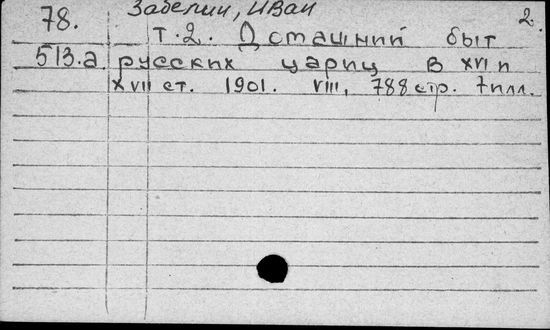 78. Забелин, Иван 2.
Т.2. Домашний быт
513.а русских цариц в XVI и
XVII ст. 1901. VIII, 788 стр. 7 илл.